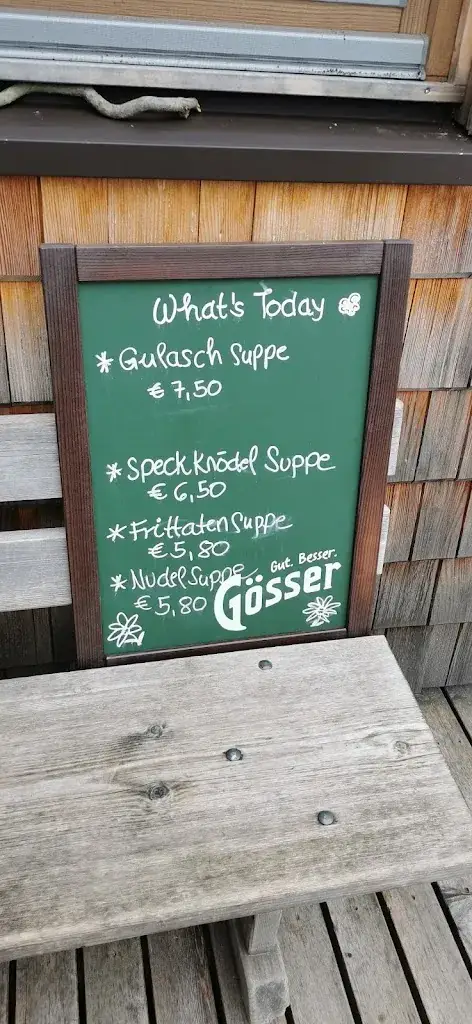 What's Today
* Gulasch Suppe
€ 7,50
* Speck Knödel Suppe
€ 6,50
* Frittaten Suppe
€ 5,80
* Nudel Suppe
€ 5,80
Gut. Besser.
Gösser